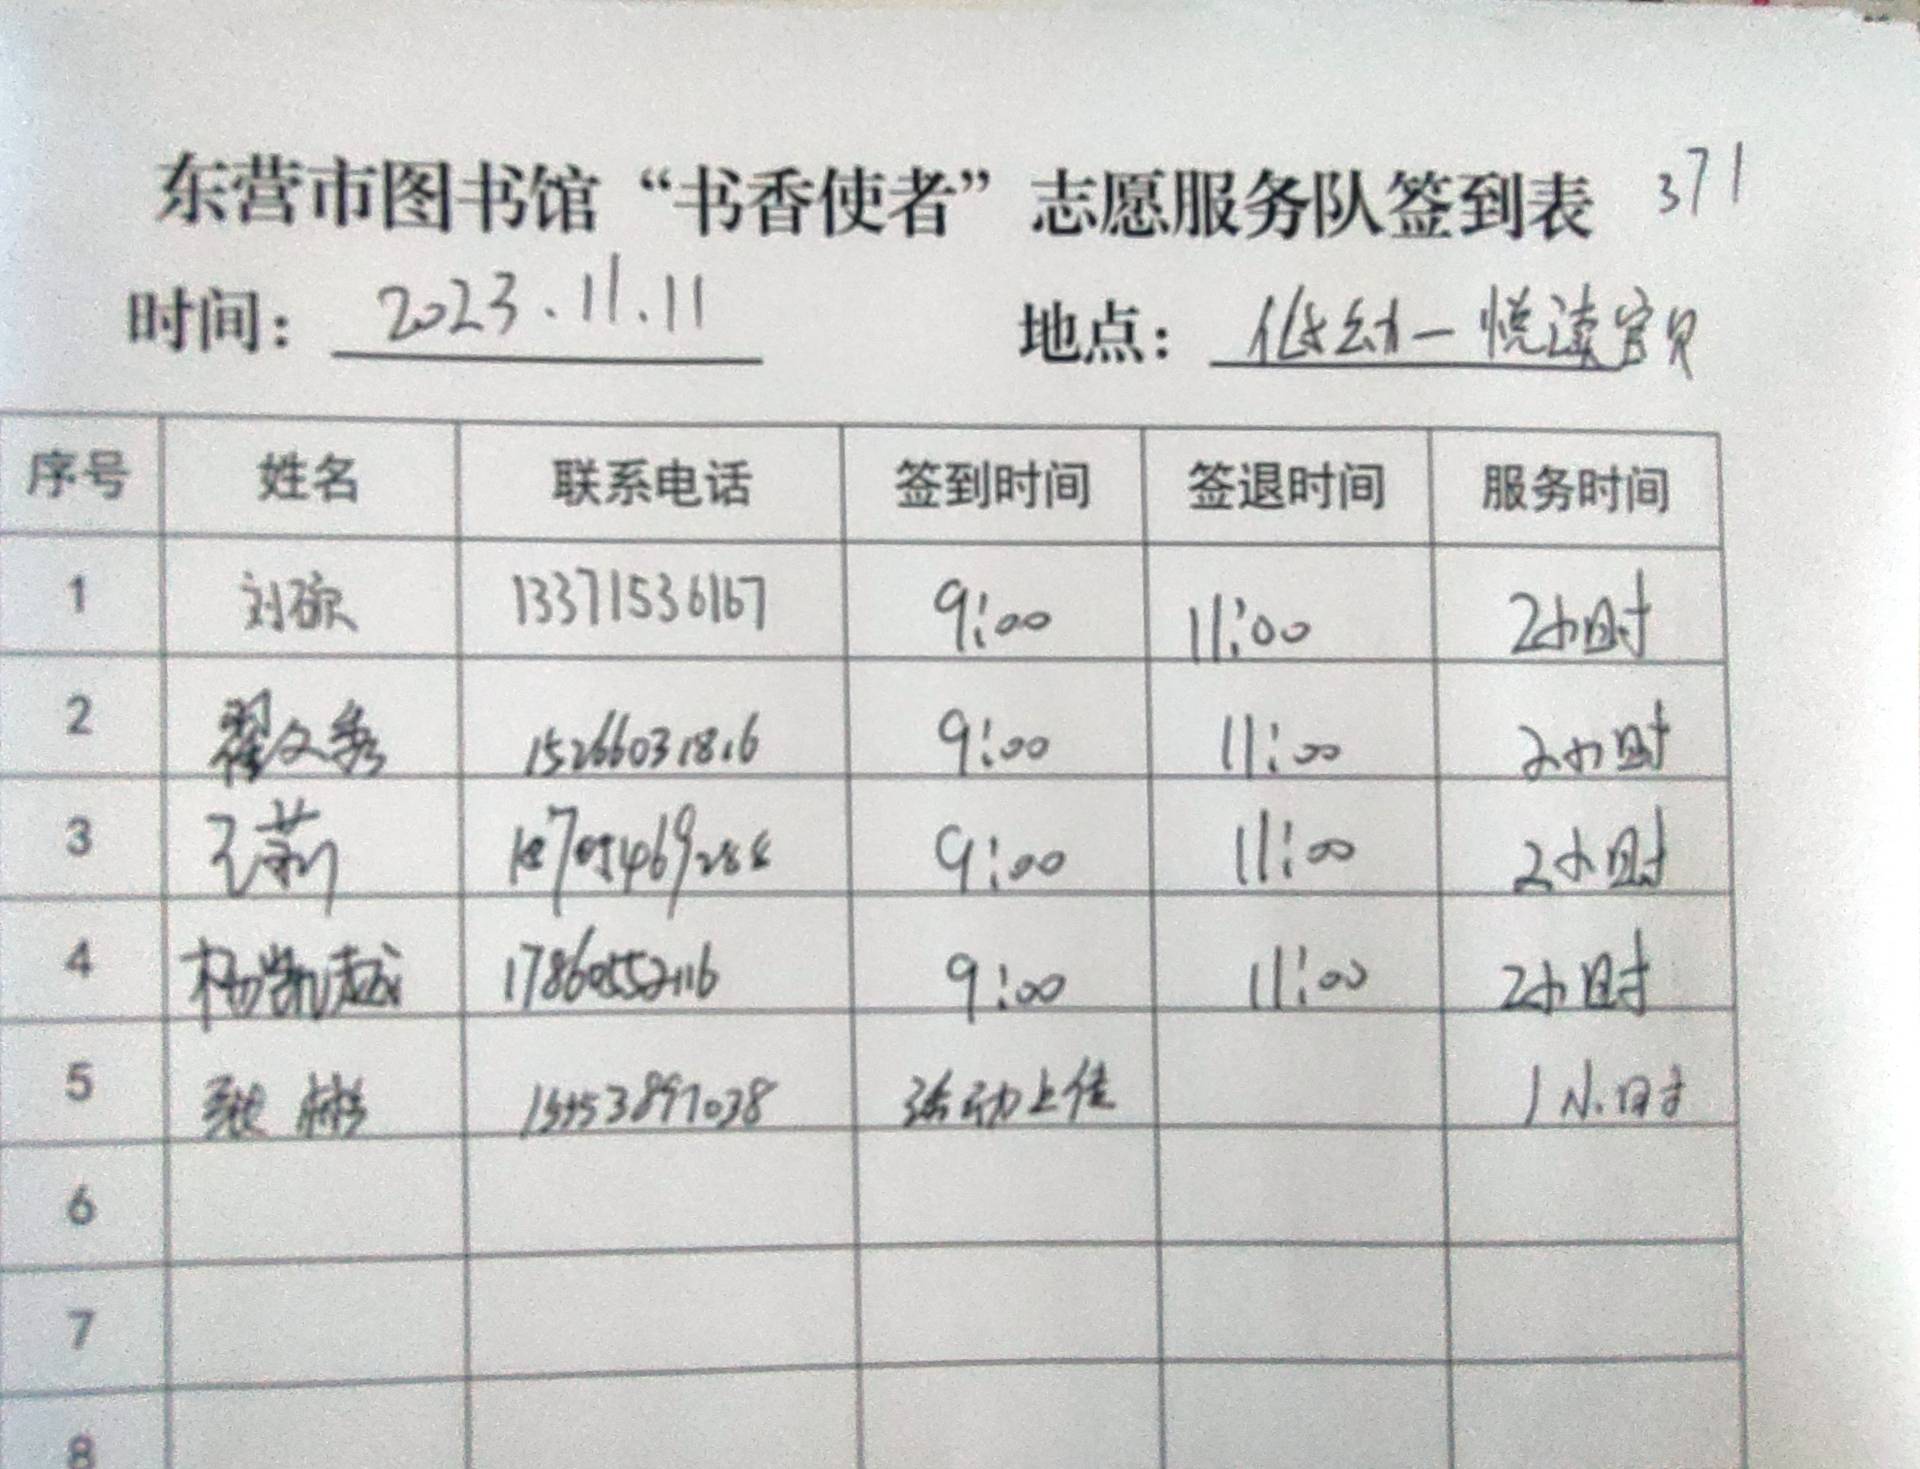 东营市图书馆“书香使者”志愿服务队签到表 371
时间： 2023.11.11 地点： 低幼一悦读宝贝
序号 姓名 联系电话 签到时间 签退时间 服务时间
1 刘硕 13371536167 9:00 11:00 2小时
2 翟文秀 15266031816 9:00 11:00 2小时
3 王莉 9:00 11:00 2小时
4 杨凯越 17860552116 9:00 11:00 2小时
5 张彬 活动上传 1小时
6
7
8